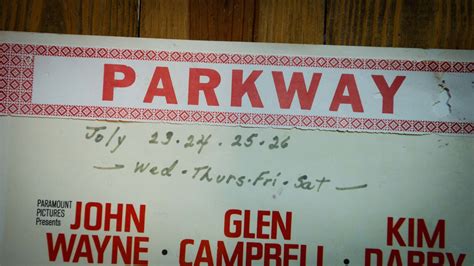 PARKWAY
July 23·24·25·26
— Wed·Thurs·Fri·Sat —
PARAMOUNT
PICTURES
Presents
JOHN
WAYNE · 
GLEN
CAMPBELL · 
KIM
DARBY